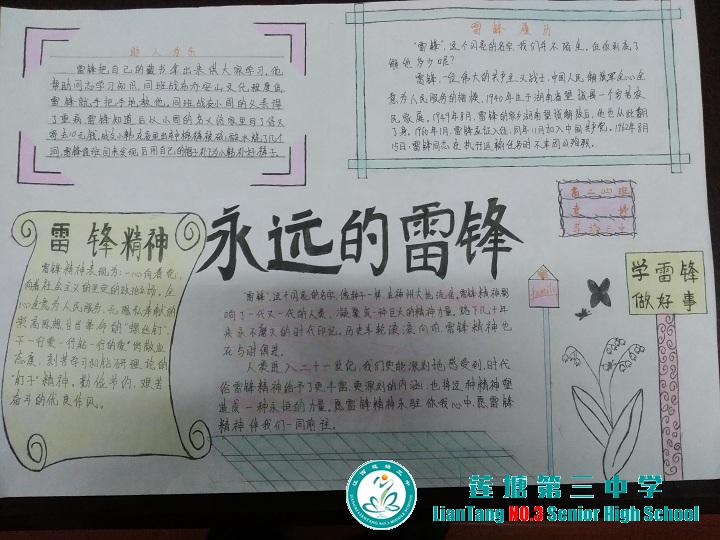 助人为乐
雷锋把自己的藏书拿出来供大家学习,他
帮助同志学习知识,同班战友乔安山文化程度低
雷锋就手把手地教他,同班战友小周的父亲得
了重病,雷锋知道后以小周的名义给家里写了信又
寄去10元钱,战友小韩在夜里出车棉裤被硫酸水烧了几个
洞,雷锋值班回来发现后用自己的帽子补为小韩补好裤子。
雷锋履历
"雷锋",这个闪亮的名字,我们并不陌生,但你到底了
解他多少呢?
雷锋,一位伟大的共产主义战士,中国人民解放军全心全
意为人民服务的楷模,1940年生于湖南省望城县一个贫苦农
民家庭。1949年8月,雷锋的家乡湖南望城解放后,他也从此翻
了身。1960年1月,雷锋应征入伍,同年11月加入中国共产党。1962年8月
15日,雷锋同志在执行运输任务时不幸因公殉职。
高二四班
永远的雷锋
雷锋精神
雷锋精神表现为:一心向着党,
向着社会主义的坚定的政治立场。全
心全意为人民服务、无私奉献的
崇高思想,甘当革命的"螺丝钉",
干一行爱一行钻一行的爱岗敬业
态度,刻苦学习和钻研理论的
"钉子"精神,勤俭节约、艰苦
奋斗的优良作风。
"雷锋",这个闪亮的名字,像种子一样,在神州大地流淌。雷锋精神影
响了一代又一代的人类,凝聚成一种巨大的精神力量,烙下几十年
来永不磨灭的时代印记。历史车轮滚滚向前,雷锋精神也
在与时俱进。
人类进入二十一世纪,我们更能深刻地感受到,时代
给雷锋精神给予了更丰富、更深刻的内涵,也将这种精神塑
造成一种永恒的力量。愿雷锋精神永驻你我心中,愿雷锋
精神伴我们一同前往。
family
学雷锋
做好事
莲塘第三中学
LianTang NO.3 Senior High School